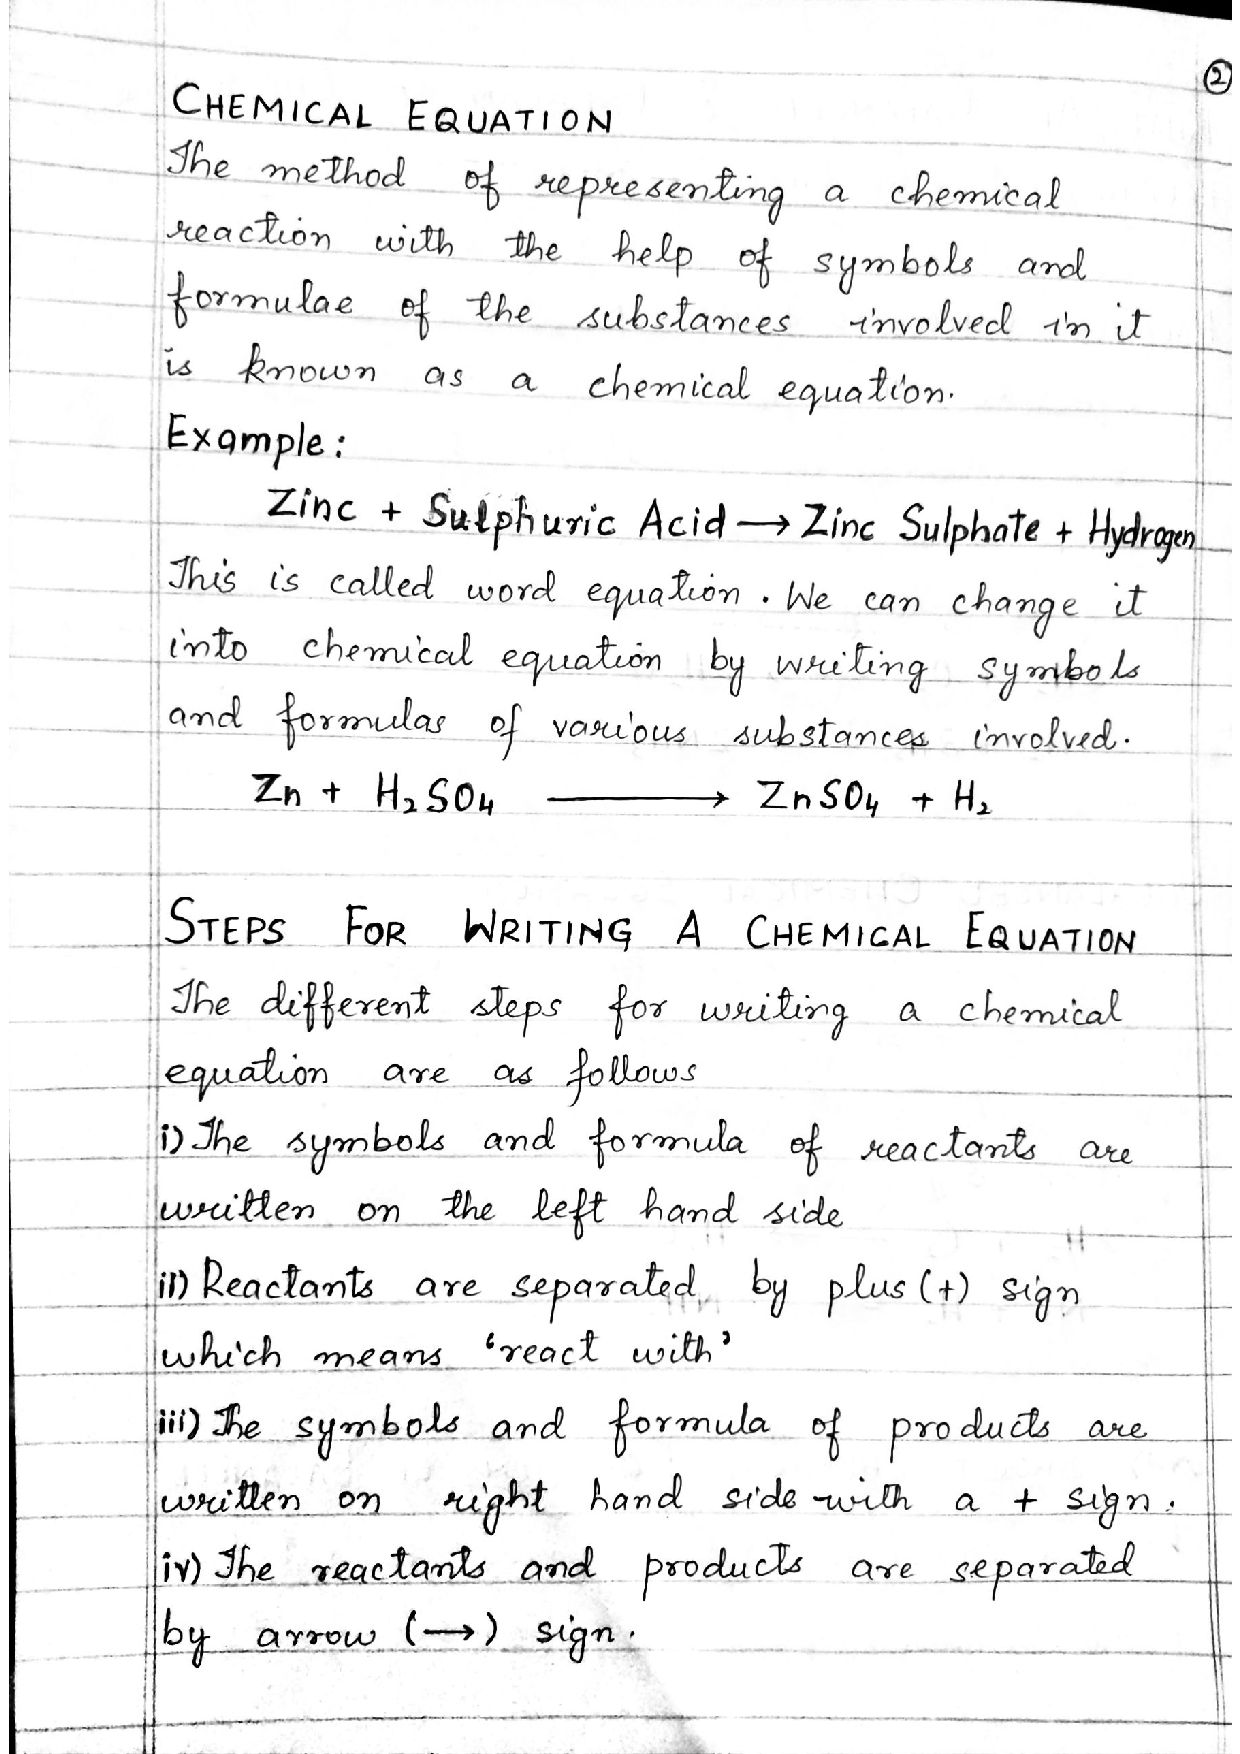 2
CHEMICAL EQUATION
The method of representing a chemical
reaction with the help of symbols and
formulae of the substances involved in it
is known as a chemical equation.
Example:
Zinc + Sulphuric Acid → Zinc Sulphate + Hydrogen
This is called word equation. We can change it
into chemical equation by writing symbols
and formulas of various substances involved.
Zn + H₂SO₄ → ZnSO₄ + H₂
STEPS FOR WRITING A CHEMICAL EQUATION
The different steps for writing a chemical
equation are as follows
i) The symbols and formula of reactants are
written on the left hand side
ii) Reactants are separated by plus (+) sign
which means 'react with'
iii) The symbols and formula of products are
written on right hand side with a + sign.
iv) The reactants and products are separated
by arrow (→) sign.